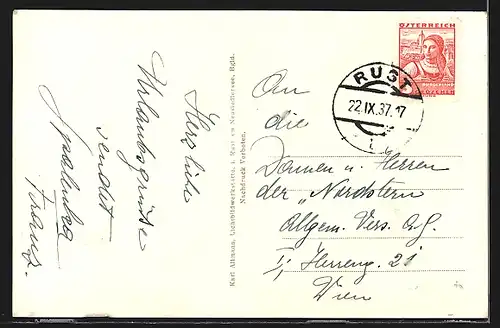 Herzliche
Urlaubsgrüsse
sendet
Franz.
Karl Altmann, Lichtbildwerkstätte, Rust am Neusiedlersee, Bgld.
Nachdruck Verboten.
ÖSTERREICH
GROSCHEN
RUST
22.IX.37.17
An
die
Damen u. Herren
der „Nordstern"
Allgem. Vers. A.G.
I, Herreng. 21
Wien